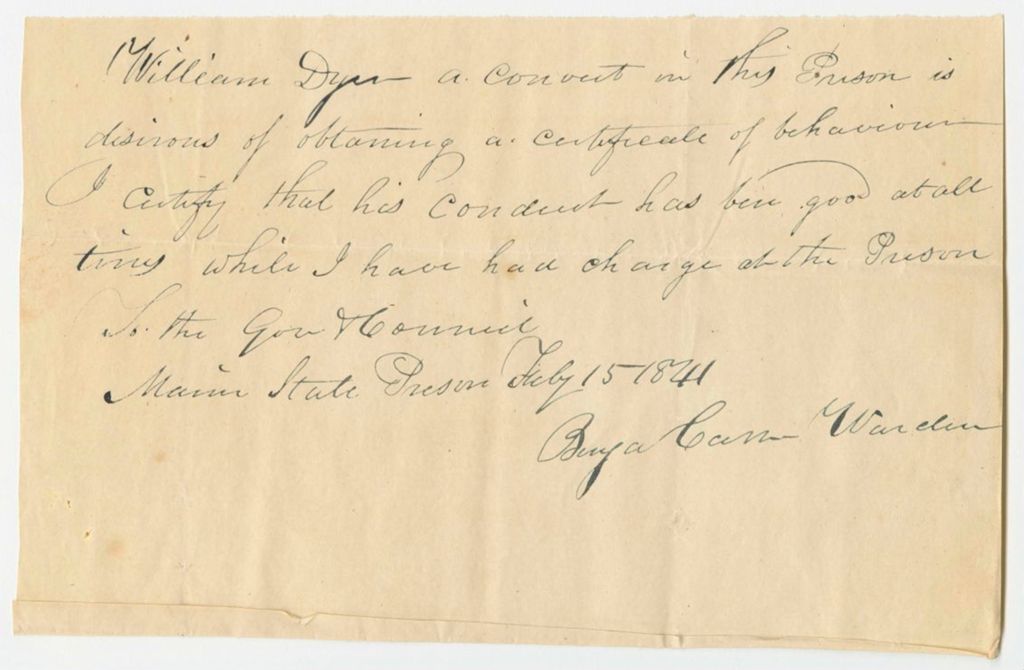 William Dyer a convict in this Prison is
disirous of obtaining a certificate of behaviour
I certify that his conduct has been good at all
times while I have had charge at the Prison
To the Gov & Council
Maine State Prison Feby 15 1841
Benja Carr Warden